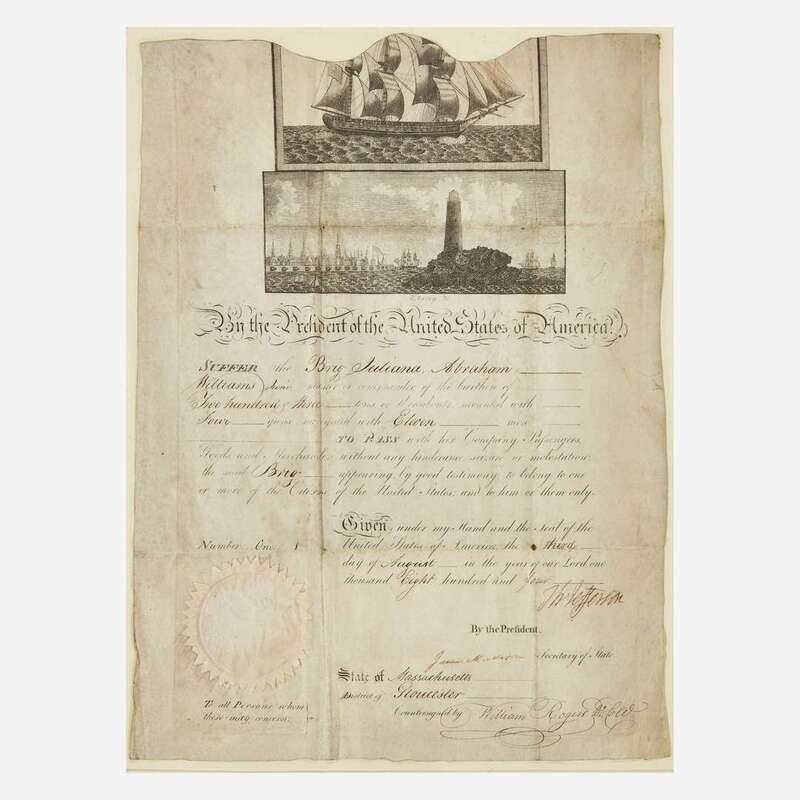 By the President of the United States of America.
SUFFER the Brig Juliana, Abraham
Williams Junr master or commander of the burthen of
Two hundred & three tons or thereabouts mounted with
Four guns navigated with Eleven men
TO PASS with her Company Passengers,
Goods and Merchandize without any hinderance seizure or molestation
the said Brig appearing by good testimony to belong to one
or more of the Citizens of the United States; and to him or them only.
Given under my Hand and the Seal of the
Number One United States of America the third
day of August in the year of our Lord one
thousand Eight hundred and four
Th Jefferson
By the President.
James Madison Secretary of State.
State of Massachusetts
District of Gloucester
Countersigned by William
To all Persons whom
these may concern.